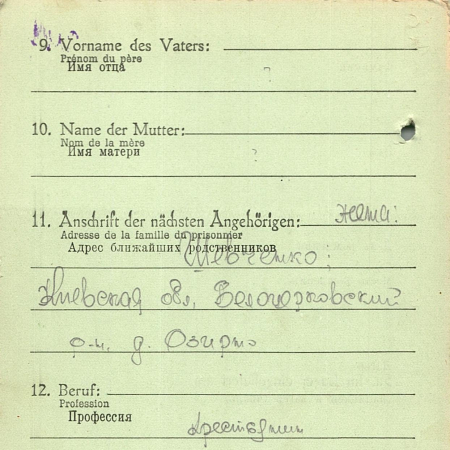 9. Vorname des Vaters:
Prénom du père
Имя отца
10. Name der Mutter:
Nom de la mère
Имя матери
11. Anschrift der nächsten Angehörigen: жена:
Adresse de la famille du prisonnier
Адрес ближайших родственников
Шевченко:
Киевская обл. Белоцерковский
р-н. д.
12. Beruf:
Profession
Профессия
крестьянин